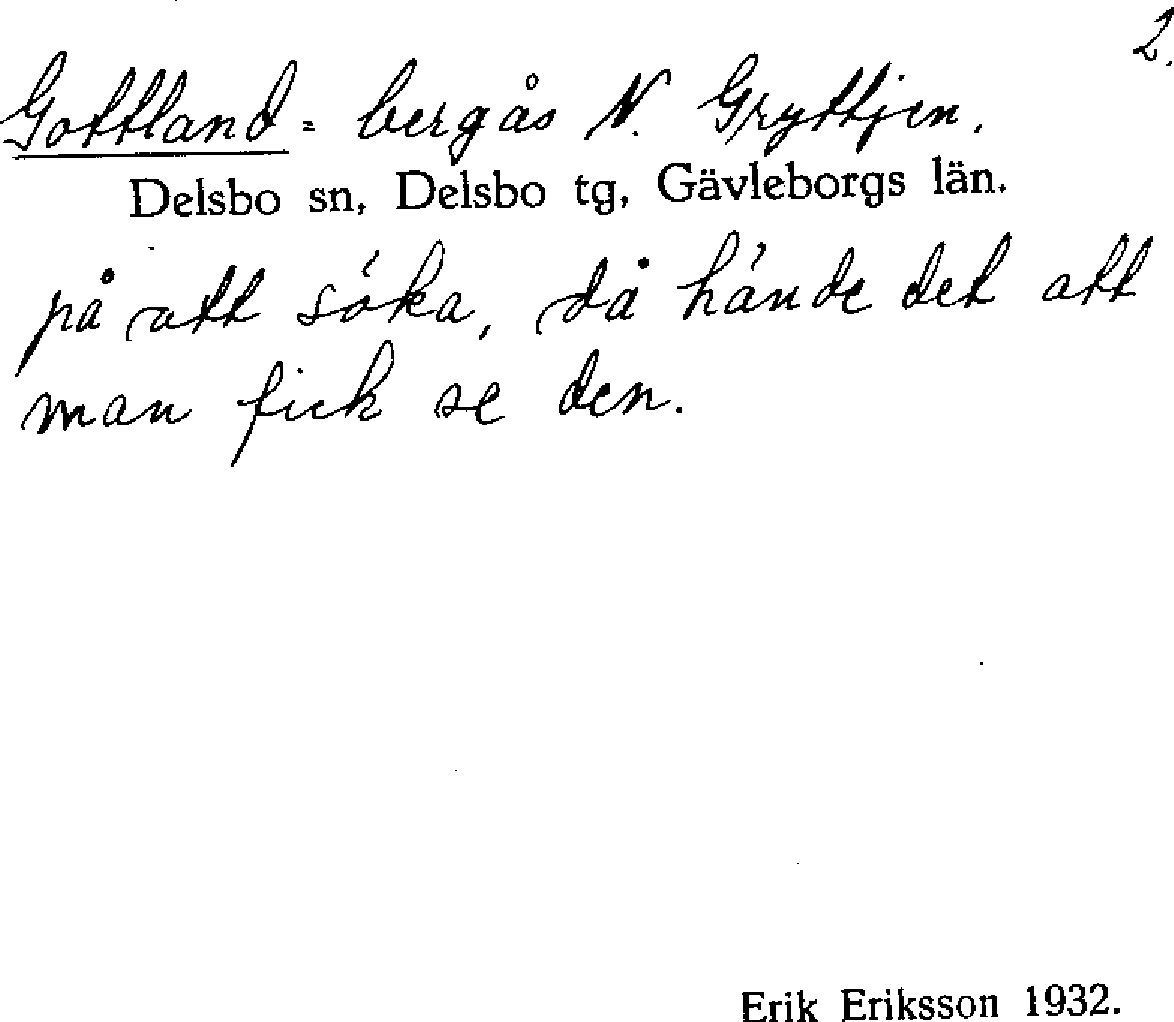 2.
Gottland = bergås N. Gryttjen.
Delsbo sn, Delsbo tg, Gävleborgs län.
på att söka, då hände det att
man fick se den.
Erik Eriksson 1932.